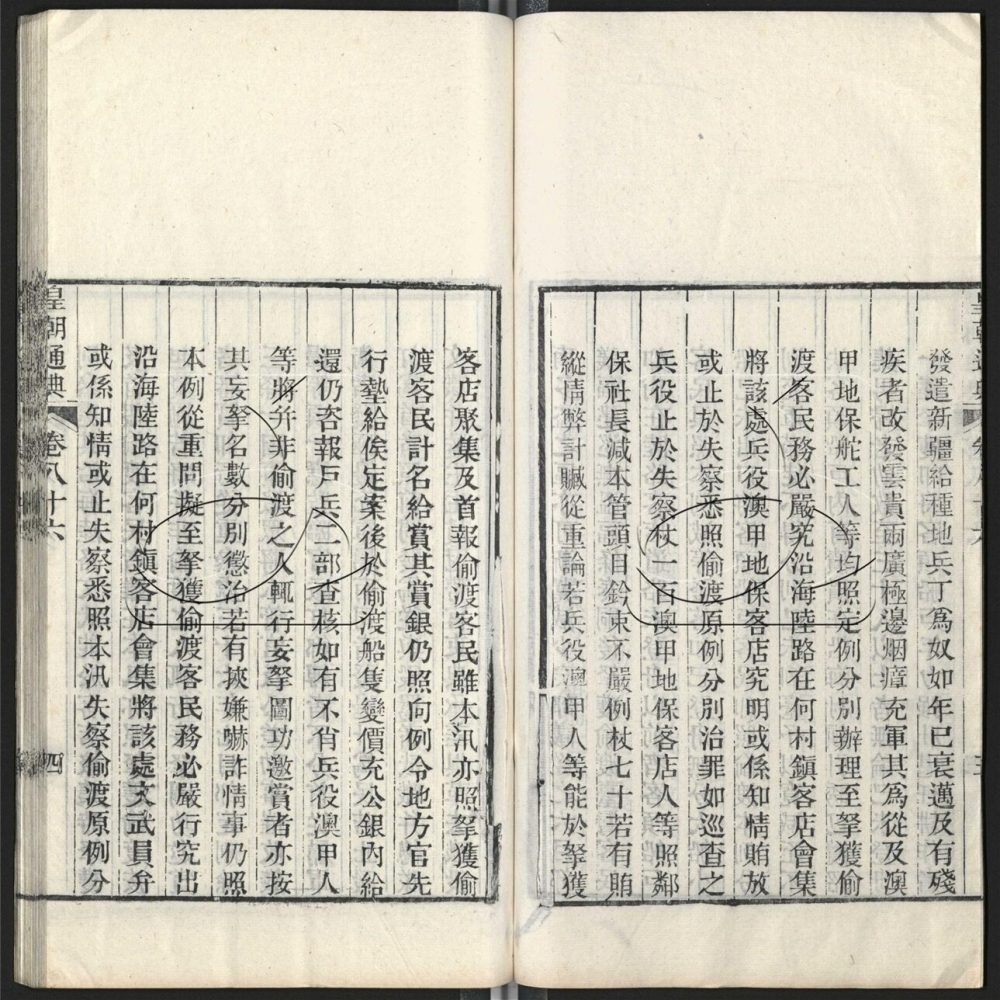 發遣新疆給種地兵丁爲奴如年已衰邁及有殘
疾者改發雲貴兩廣極邊烟瘴充軍其爲從及澳
甲地保舵工人等均照定例分別辦理至拏獲偷
渡客民務必嚴究沿海陸路在何村鎮客店會集
將該處兵役澳甲地保客店究明或係知情賄放
或止於失察悉照偷渡原例分別治罪如巡查之
兵役止於失察杖一百澳甲地保客店人等照鄰
保社長減本管頭目鈐束不嚴例杖七十若有賄
縱情弊計贓從重論若兵役澳甲人等能於拏獲
客店聚集及首報偷渡客民雖本汛亦照拏獲偷
渡客民計名給賞其賞銀仍照向例令地方官先
行墊給俟定案後於偷渡船隻變價充公銀內給
還仍咨報戶兵二部查核如有不肖兵役澳甲人
等將並非偷渡之人輒行妄拏圖功邀賞者亦按
其妄拏名數分別懲治若有挾嫌嚇詐情事仍照
本例從重問擬至拏獲偷渡客民務必嚴行究出
沿海陸路在何村鎮客店會集將該處文武員弁
或係知情或止失察悉照本汛失察偷渡原例分
皇朝通典 卷八十六 四